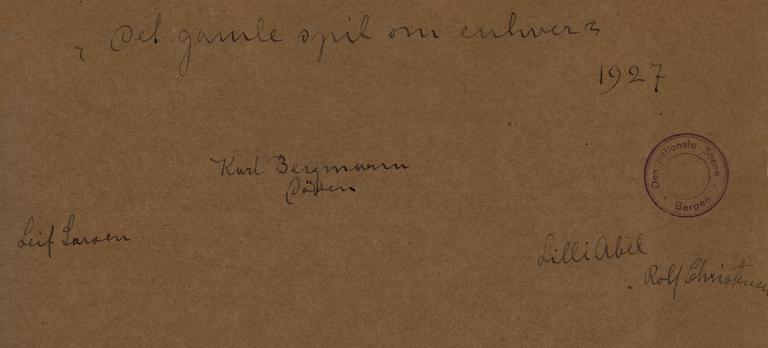 „Det gamle spil om enhver"
1927
Karl Bergmann
Döden
Den Nationale Scene
Bergen
Leif Larsen
Lilli Abel
Rolf Christensen